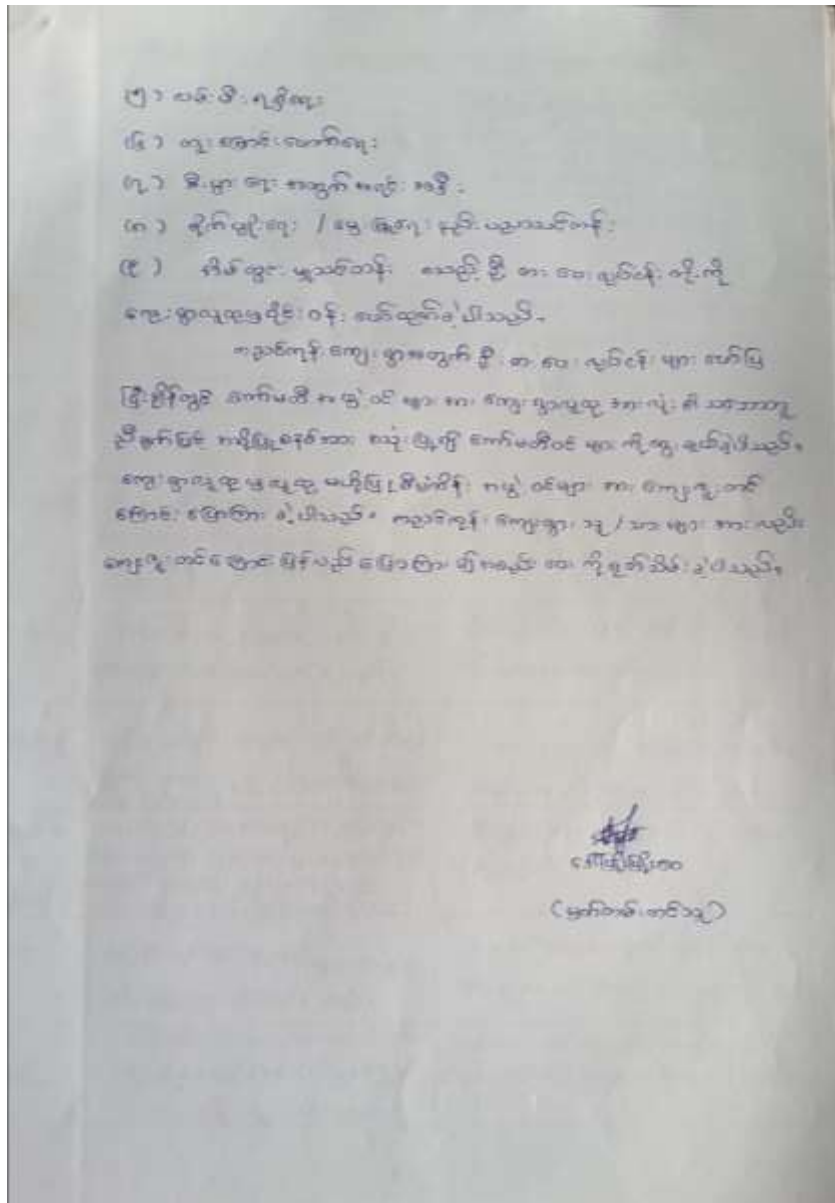 (၅) လမ်းမီး ရရှိရေး
(၆) တူးမြောင်းဖောက်ရေး
(၇) စီးပွားရေး အတွက် အရင်း အနှီး
(၈) စိုက်ပျိုးရေး / မွေးမြူရေး နည်းပညာသင်တန်း
(၉) အိမ်တွင်းမှုသင်တန်း စသည့် ဦးစားပေး လုပ်ငန်း တို့ကို
ကျေးရွာလူထုမှ ဝိုင်းဝန်း ဖော်ထုတ်ခဲ့ပါသည်။
ကညင်ကုန်းကျေးရွာအတွက် ဦးစားပေးလုပ်ငန်းများ ဖော်ပြ
ပြီးချိန်တွင် ကော်မတီအဖွဲ့ဝင်များအား ကျေးရွာလူထုအားလုံး၏ သဘောတူ
ညီချက်ဖြင့် အဆိုပြုစနစ်အား အသုံးပြု၍ ကော်မတီဝင်များကို ရွေးချယ်ခဲ့ပါသည်။
ကျေးရွာလူထုမှ လူထုဗဟိုပြုစီမံကိန်း အဖွဲ့ဝင်များအား ကျေးဇူးတင်
ကြောင်း ပြောကြားခဲ့ပါသည်။ ကညင်ကုန်းကျေးရွာသူ/သားများအားလည်း
ကျေးဇူးတင်ကြောင်း ပြန်လည်ပြောကြား၍ အစည်းအဝေးကို ရုတ်သိမ်းခဲ့ပါသည်။
(မှတ်တမ်းတင်သူ)